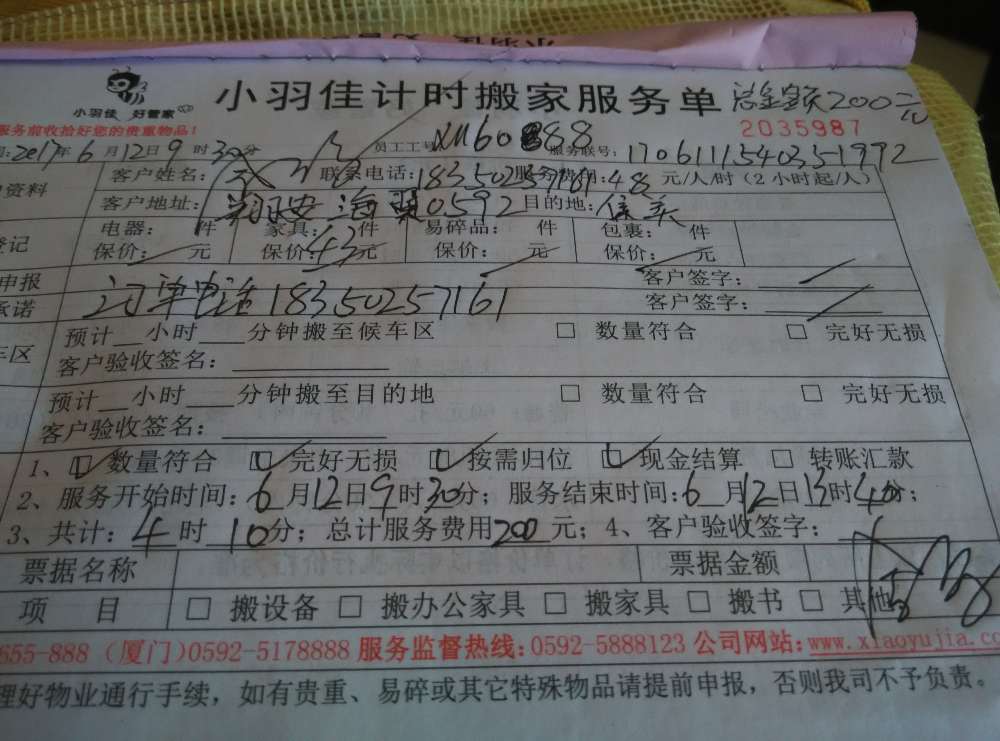 小羽佳 好管家
小羽佳计时搬家服务单 总金额200元
服务前收拾好您的贵重物品! 2035987
2017年6月12日9时30分 员工工号 服务联号:1706111540351992
资料 客户姓名: 联系电话:18350257161 服务费用:48元/人/时(2小时起/人)
客户地址:翔安海翼0592 目的地:
登记 电器: 件 家具: 件 易碎品: 件 包裹: 件
保价: 元 保价: 元 保价: 元 保价: 元
申报 客户签字:
承诺 订单电话18350257161 客户签字:
预计__小时___分钟搬至候车区 □ 数量符合 □ 完好无损
车区 客户验收签名:
预计__小时___分钟搬至目的地 □ 数量符合 □ 完好无损
客户验收签名:
1、☑数量符合 ☑完好无损 ☑按需归位 ☑现金结算 □ 转账汇款
2、服务开始时间:6月12日9时30分;服务结束时间:6月12日13时40分;
3、共计:4时10分;总计服务费用200元;4、客户验收签字:
票据名称 票据金额
项 目 □ 搬设备 □ 搬办公家具 □ 搬家具 □ 搬书 □ 其他
655-888 (厦门)0592-5178888 服务监督热线:0592-5888123 公司网站:www.xiaoyujia.co
理好物业通行手续,如有贵重、易碎或其它特殊物品请提前申报,否则我司不予负责。